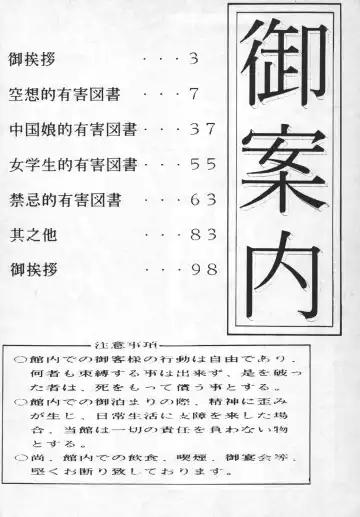 御案内
御挨拶 ･･･3
空想的有害図書 ･･･7
中国娘的有害図書 ･･･37
女学生的有害図書 ･･･55
禁忌的有害図書 ･･･63
其之他 ･･･83
御挨拶 ･･･98
注意事項
○館内での御客様の行動は自由であり、
何者も束縛する事は出来ず、是を破っ
た者は、死をもって償う事とする。
○館内での御泊まりの際、精神に歪み
が生じ、日常生活に支障を来した場
合、当館は一切の責任を負わない物
とする。
○尚、館内での飲食、喫煙、御宴会等、
堅くお断り致しております。